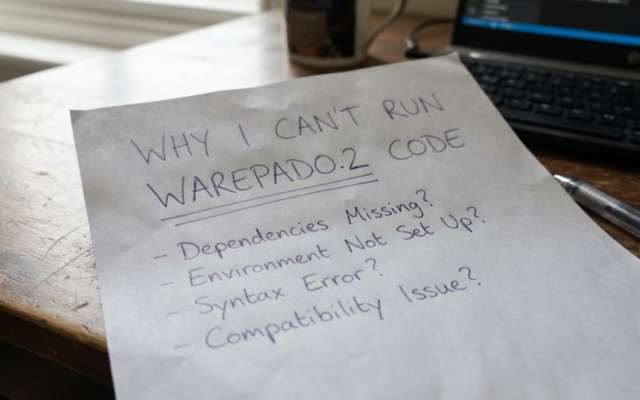 WHY I CAN'T RUN
WAREPADO.2 CODE
- Dependencies Missing?
- Environment Not Set Up?
- Syntax Error?
- Compatibility Issue?